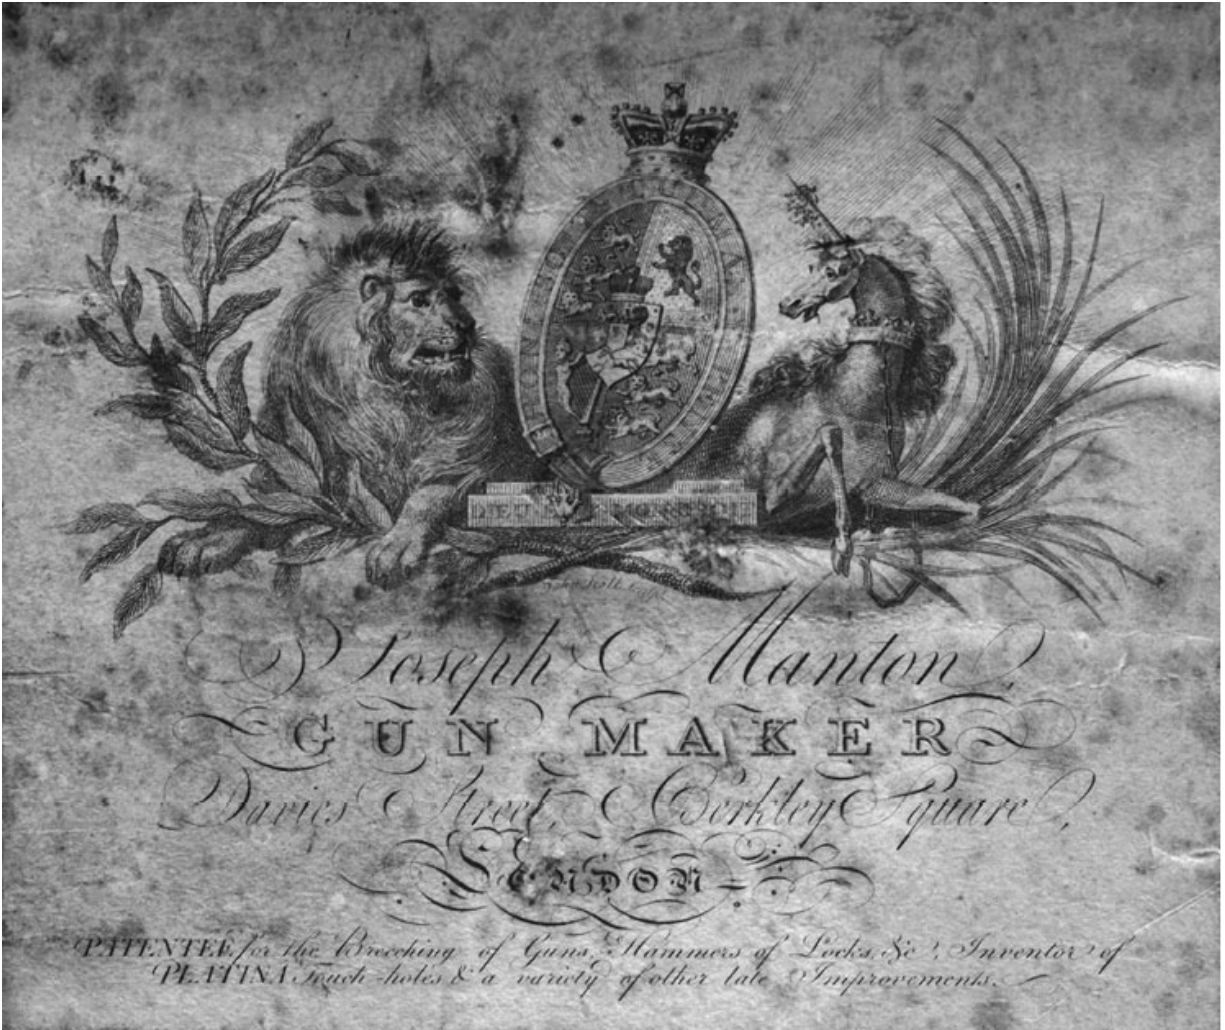 HONI SOIT QUI MAL Y
DIEU ET MON DROIT
Joseph Manton,
GUN MAKER
Davies Street, Berkley Square,
LONDON
PATENTEE for the Breeching of Guns, Hammers of Locks, &c, Inventor of
PLATINA Touch-holes & a variety of other late Improvements.